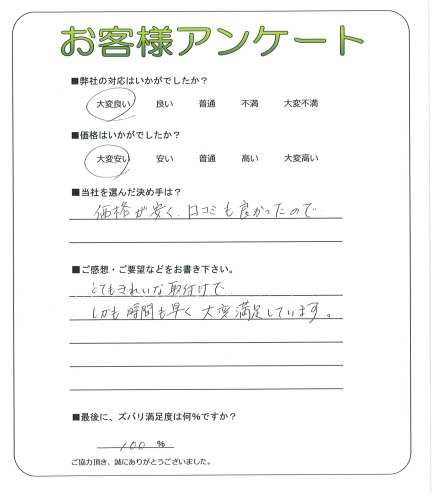 お客様アンケート
■弊社の対応はいかがでしたか？
大変良い 良い 普通 不満 大変不満
■価格はいかがでしたか？
大変安い 安い 普通 高い 大変高い
■当社を選んだ決め手は？
価格が安く、口コミも良かったので
■ご感想・ご要望などをお書き下さい。
とてもきれいな取付けで
しかも時間も早く大変満足しています。
■最後に、ズバリ満足度は何％ですか？
100 ％
ご協力頂き、誠にありがとうございました。